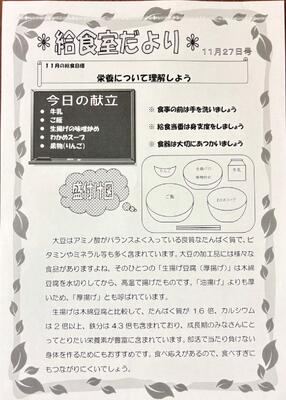 ＊給食室だより＊
11月27日号
１１月の給食目標
栄養について理解しよう
今日の献立
● 牛乳
● ご飯
● 生揚げの味噌炒め
● わかめスープ
● 果物(りんご)
※ 食事の前は手を洗いましょう
※ 給食当番は身支度をしましょう
※ 食器は大切にあつかいましょう
盛付け図
りんご
生揚げの
味噌炒め
牛乳
ご飯
わかめスープ
大豆はアミノ酸がバランスよく入っている良質なたんぱく質で、ビ
タミンやミネラル等も多く含まれています。大豆の加工品には様々な
食品がありますよね。そのひとつの「生揚げ豆腐（厚揚げ」は木綿
豆腐を水切りしてから、高温で揚げたものです。「油揚げ」よりも厚
いため、「厚揚げ」とも呼ばれています。
生揚げは木綿豆腐と比較して、たんぱく質が 1.6 倍、カルシウム
は 2 倍以上、鉄分は 4.3 倍も含まれており、成長期のみなさんにと
ってとりたい栄養素が豊富に含まれています。部活で当たり負けない
身体を作るためにもおすすめです。食べ応えがあるので、食べすぎに
もつながりにくいでしょう。